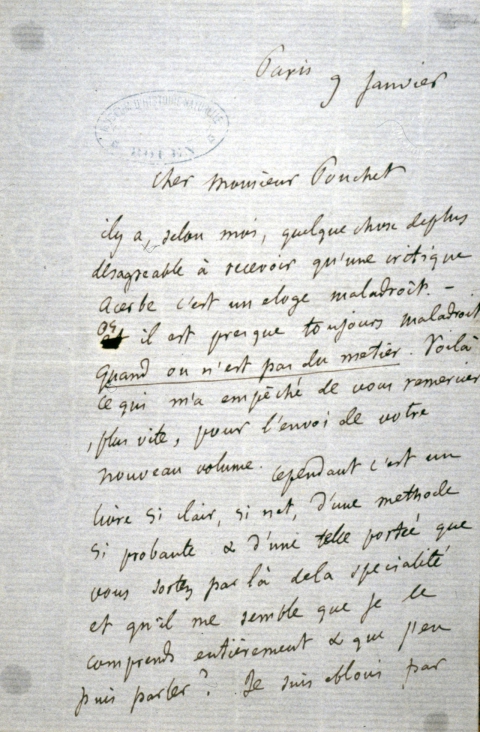 Paris 9 Janvier
MUSEUM D'HISTOIRE NATURELLE
ROUEN
Cher Monsieur Pouchet
il y a, selon moi, quelque chose de plus
désagreable à recevoir qu'une critique
acerbe c'est un eloge maladroit. –
or il est presque toujours maladroit
quand on n'est pas du metier. Voilà
ce qui m'a empêché de vous remercier
plus vite, pour l'envoi de votre
nouveau volume. Cependant c'est un
livre si clair, si net, d'une methode
si probante & d'une telle portée que
vous sortez par là de la spécialité
et qu'il me semble que je le
comprends entièrement & que j'en
puis parler? Je suis ébloui par